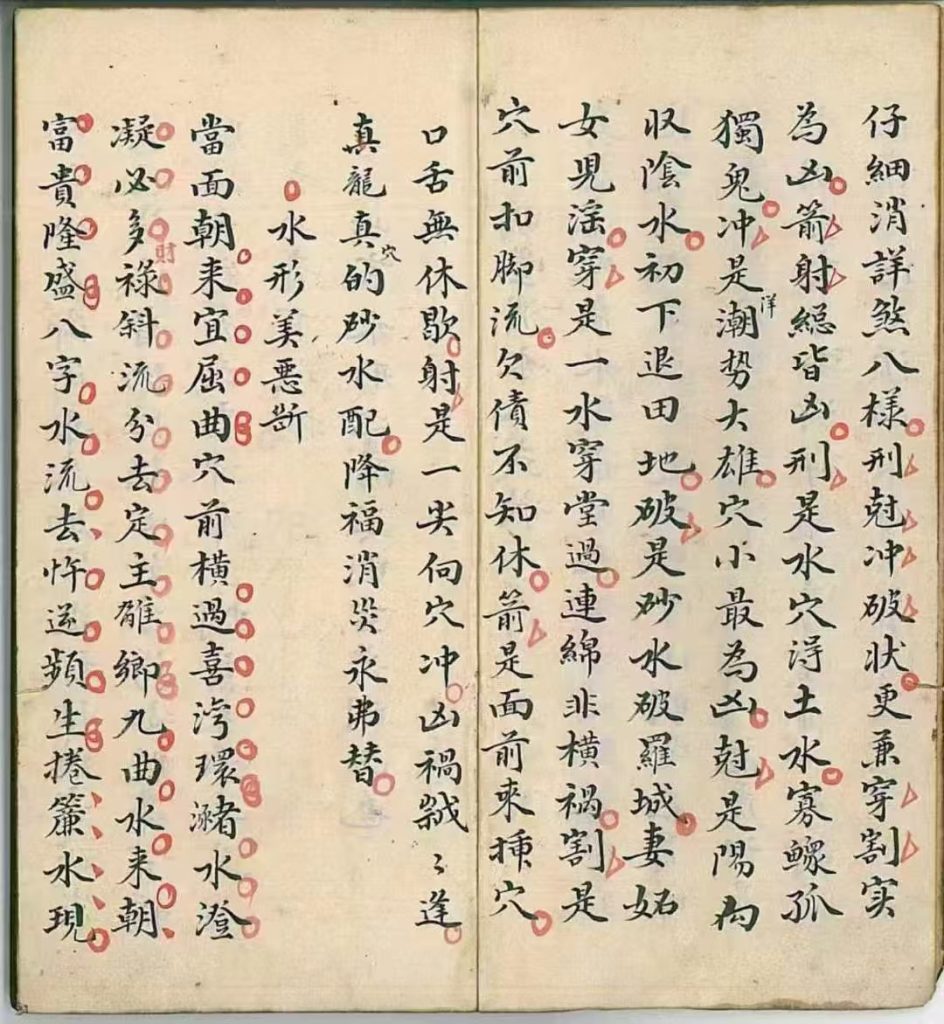 仔細消詳煞八樣刑尅冲破状更兼穿割实
為凶箭射緫皆凶刑是水穴淂土水寡鰥孤
獨鬼冲是潮洋势大雄穴小最為凶尅是陽向
収陰水初下退田地破是砂水破羅城妻妬
女児滛穿是一水穿堂過連綿非横禍割是
穴前扣脚流欠债不知休箭是面前来挿穴
口舌無休歇射是一尖向穴冲凶禍〻逢
真龍真穴的砂水配降福消災永弗替
水形美悪断
當面朝来宜屈曲穴前横過喜湾環瀦水澄
凝必多財祿斜流分去定主離鄉九曲水来朝
富貴隆盛八字水流去忤逆頻生捲簾水現